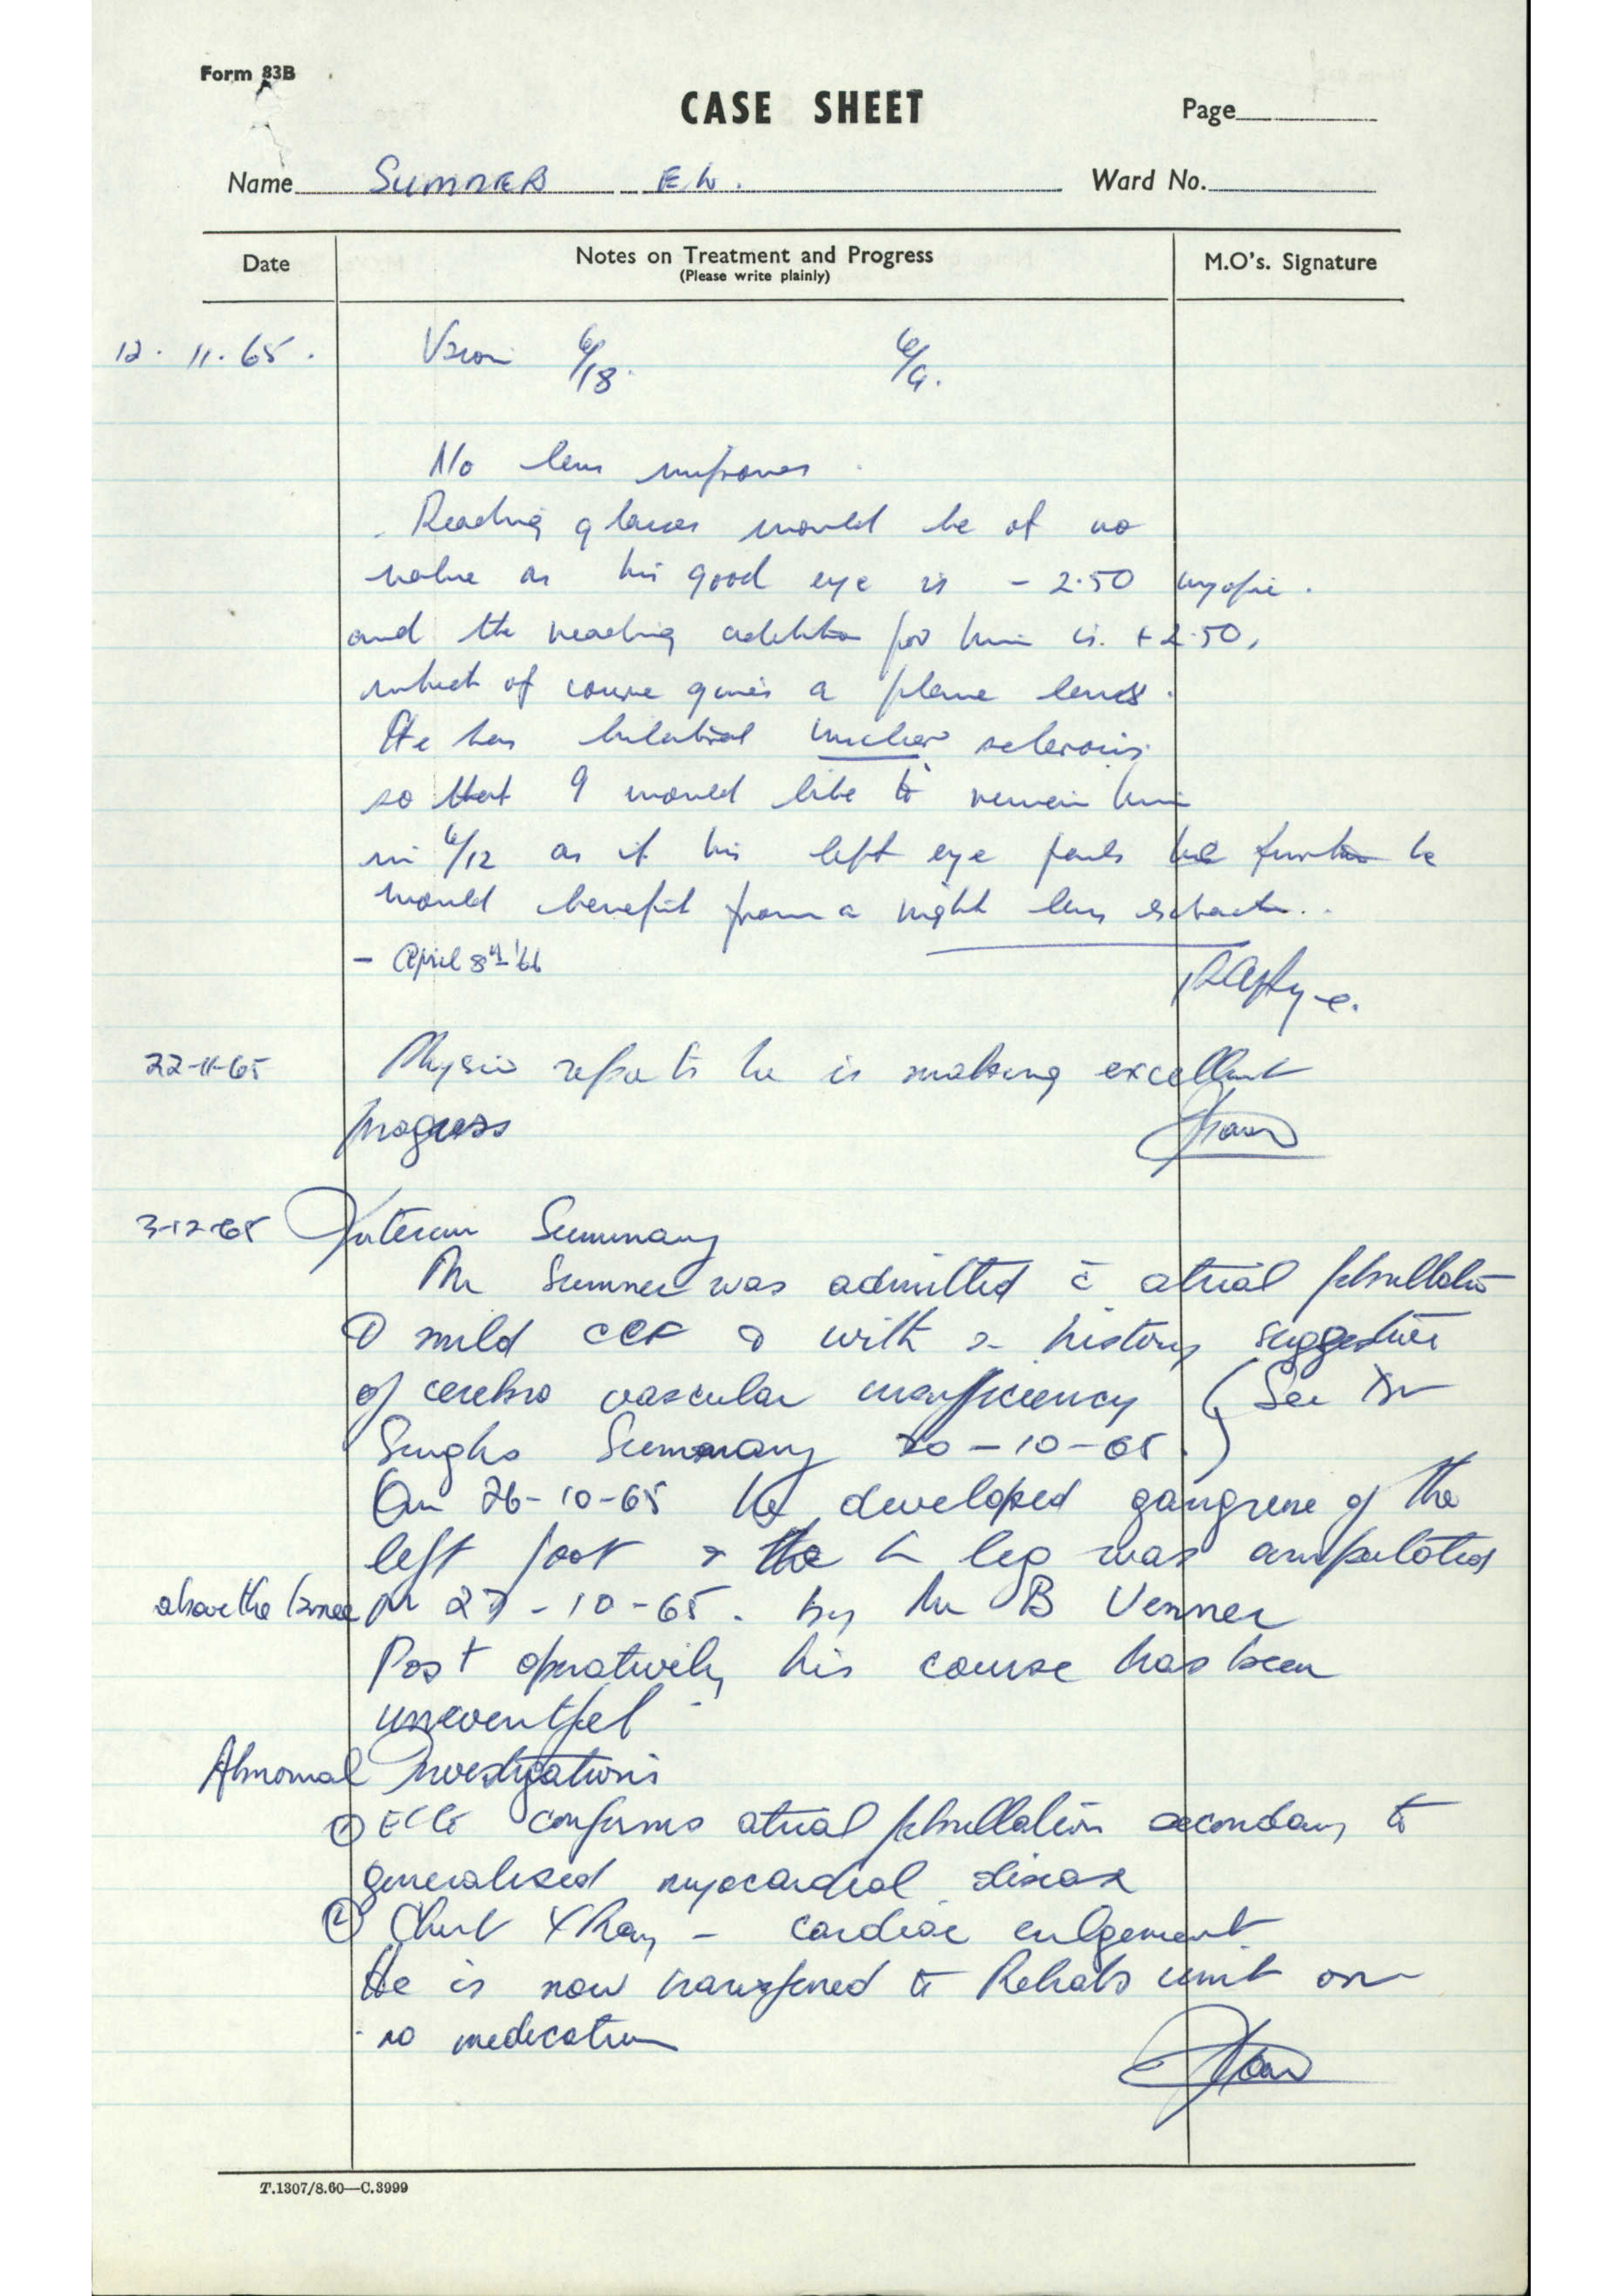 Form 83B
CASE SHEET
Page
Name SUMNER E W.
Ward No.
Date
Notes on Treatment and Progress
(Please write plainly)
M.O's. Signature
12. 11. 65. Vision 6/18. 6/9.
No lens improves.
Reading glasses would be of no
value as his good eye is - 2.50 myopic.
and the reading addition for him is. + 2.50,
which of course gives a plane lens.
He has bilateral nuclear sclerosis.
so that I would like to review him
in 6/12 as if his left eye fails further he
would benefit from a right lens extraction..
- April 8th '66
22-11-65 Physio reports he is making excellent
progress
3-12-65 Interim Summary
Mr Sumner was admitted c̄ atrial fibrillation
mild CCF & with a history suggestive
of cerebro vascular insufficiency (See Dr
Singhs Summary 20-10-65.)
On 26-10-65 he developed gangrene of the
left foot & the L leg was amputated
above the knee on 27-10-65. by Mr B Venner
Post operatively his course has been
uneventful
Abnormal Investigations
① ECG confirms atrial fibrillation secondary to
generalised myocardial disease
② Chest XRay - cardiac enlgement
He is now transferred to Rehab unit on
no medication
T.1307/8.60—C.3999